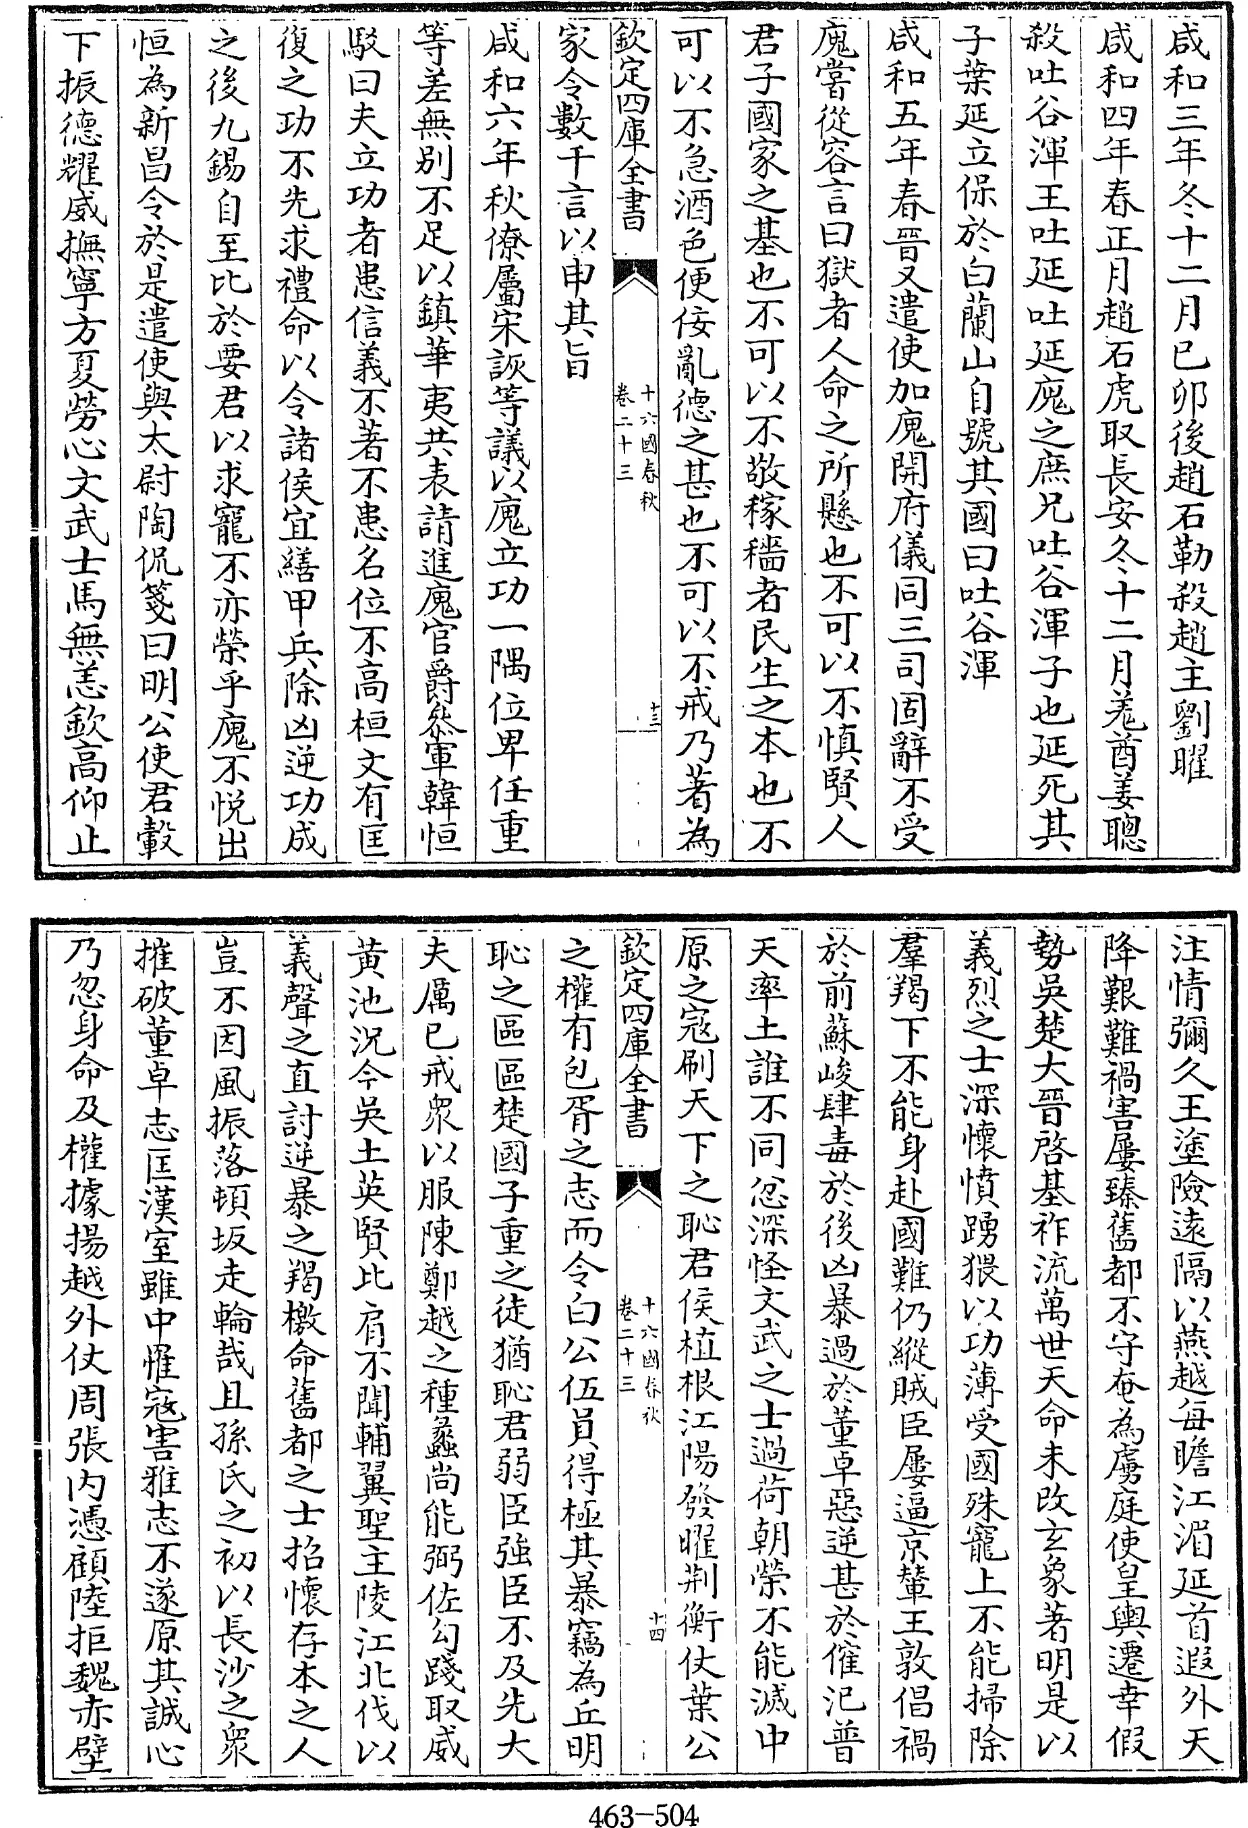 咸和三年冬十二月己卯後趙石勒殺趙主劉曜
咸和四年春正月趙石虎取長安冬十二月羗酋姜聰
殺吐谷渾王吐延吐延廆之庶兄吐谷渾子也延死其
子葉延立保於白蘭山自號其國曰吐谷渾
咸和五年春晉又遣使加廆開府儀同三司固辭不受
廆嘗從容言曰獄者人命之所懸也不可以不慎賢人
君子國家之基也不可以不敬稼穡者民生之本也不
可以不急酒色便佞亂德之甚也不可以不戒乃著為
欽定四庫全書
十六國春秋
卷二十三
十三
家令數千言以申其旨
咸和六年秋僚屬宋該等議以廆立功一隅位卑任重
等差無別不足以鎮華夷共表請進廆官爵叅軍韓恒
駁曰夫立功者患信義不著不患名位不高桓文有匡
復之功不先求禮命以令諸侯宜繕甲兵除凶逆功成
之後九錫自至比於要君以求寵不亦榮乎廆不悅出
恒為新昌令於是遣使與太尉陶侃箋曰明公使君轂
下振德耀威撫寧方夏勞心文武士馬無恙欽高仰止
注情彌久王塗險遠隔以燕越每瞻江湄延首遐外天
降艱難禍害屢臻舊都不守奄為虜庭使皇輿遷幸假
勢吳楚大晉啓基祚流萬世天命未改玄象著明是以
義烈之士深懷憤踴猥以功薄受國殊寵上不能掃除
羣羯下不能身赴國難仍縱賊臣屢逼京輦王敦倡禍
於前蘇峻肆毒於後凶暴過於董卓惡逆甚於傕汜普
天率土誰不同忿深怪文武之士過荷朝榮不能滅中
原之寇刷天下之恥君侯植根江陽發曜荆衡仗葉公
欽定四庫全書
十六國春秋
卷二十三
十四
之權有包胥之志而令白公伍員得極其暴竊為丘明
恥之區區楚國子重之徒猶恥君弱臣強臣不及先大
夫厲已戒衆以服陳鄭越之種蠡尚能弼佐勾踐取威
黄池況今吳土英賢比肩不聞輔翼聖主陵江北伐以
義聲之直討逆暴之羯檄命舊都之士招懷存本之人
豈不因風振落頓坂走輪哉且孫氏之初以長沙之衆
摧破董卓志匡漢室雖中惟寇害雅志不遂原其誠心
乃忽身命及權據揚越外仗周張內憑顧陸拒魏赤壁
463-504